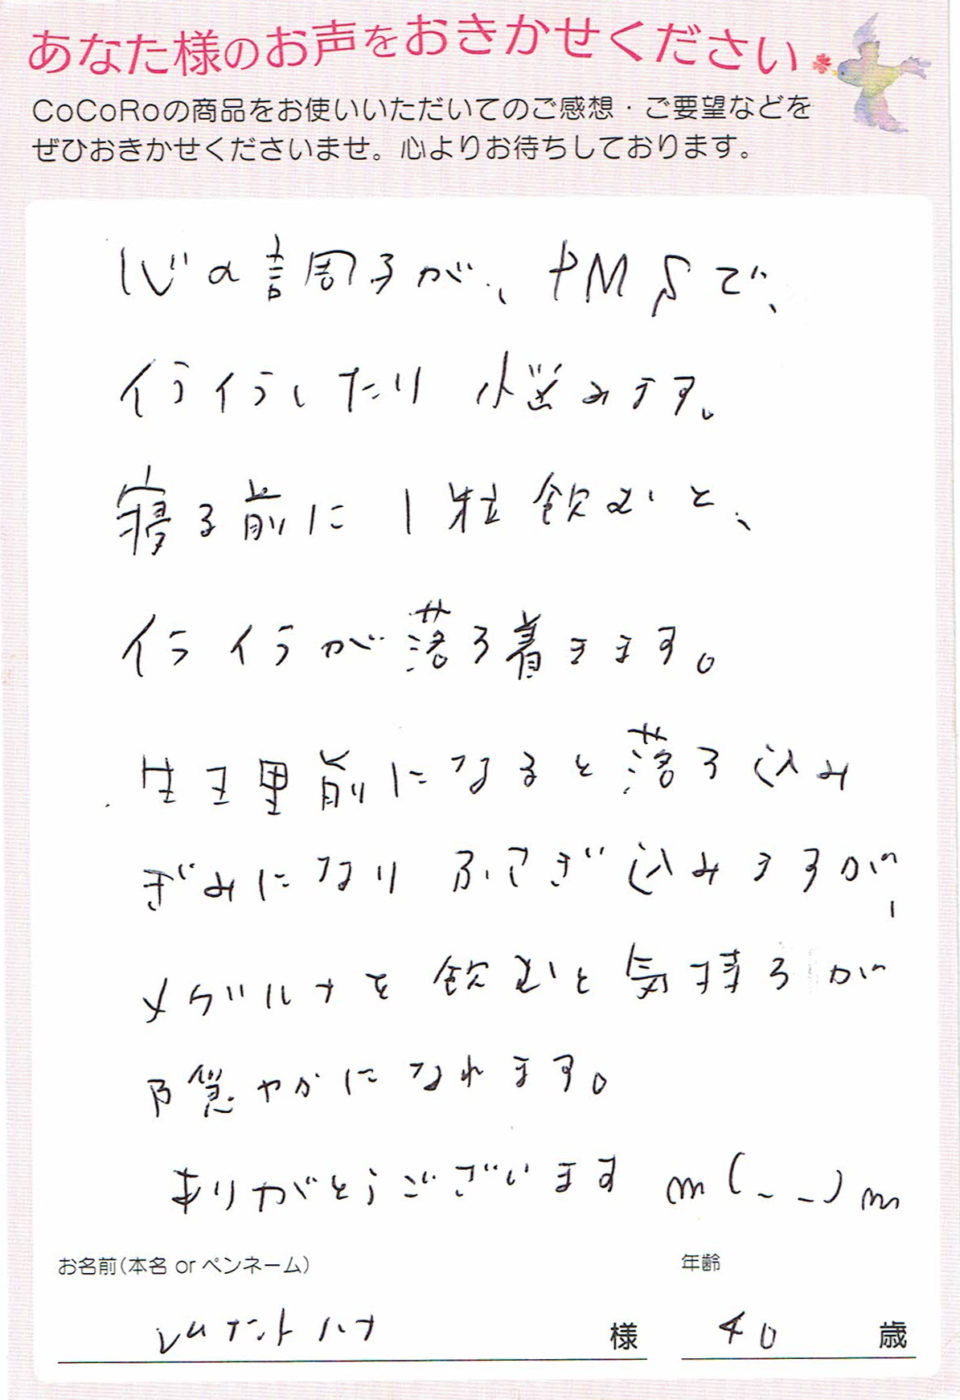 あなた様のお声をおきかせください
CoCoRoの商品をお使いいただいてのご感想・ご要望などを
ぜひおきかせくださいませ。心よりお待ちしております。
心の調子が、PMSで、
イライラしたり悩みます。
寝る前に1粒飲むと、
イライラが落ち着きます。
生理前になると落ち込み
ぎみになりふさぎ込みますが、
メグルナを飲むと気持ちが
穏やかになれます。
ありがとうございます m(_ _)m
お名前(本名 or ペンネーム)
年齢
様
40 歳